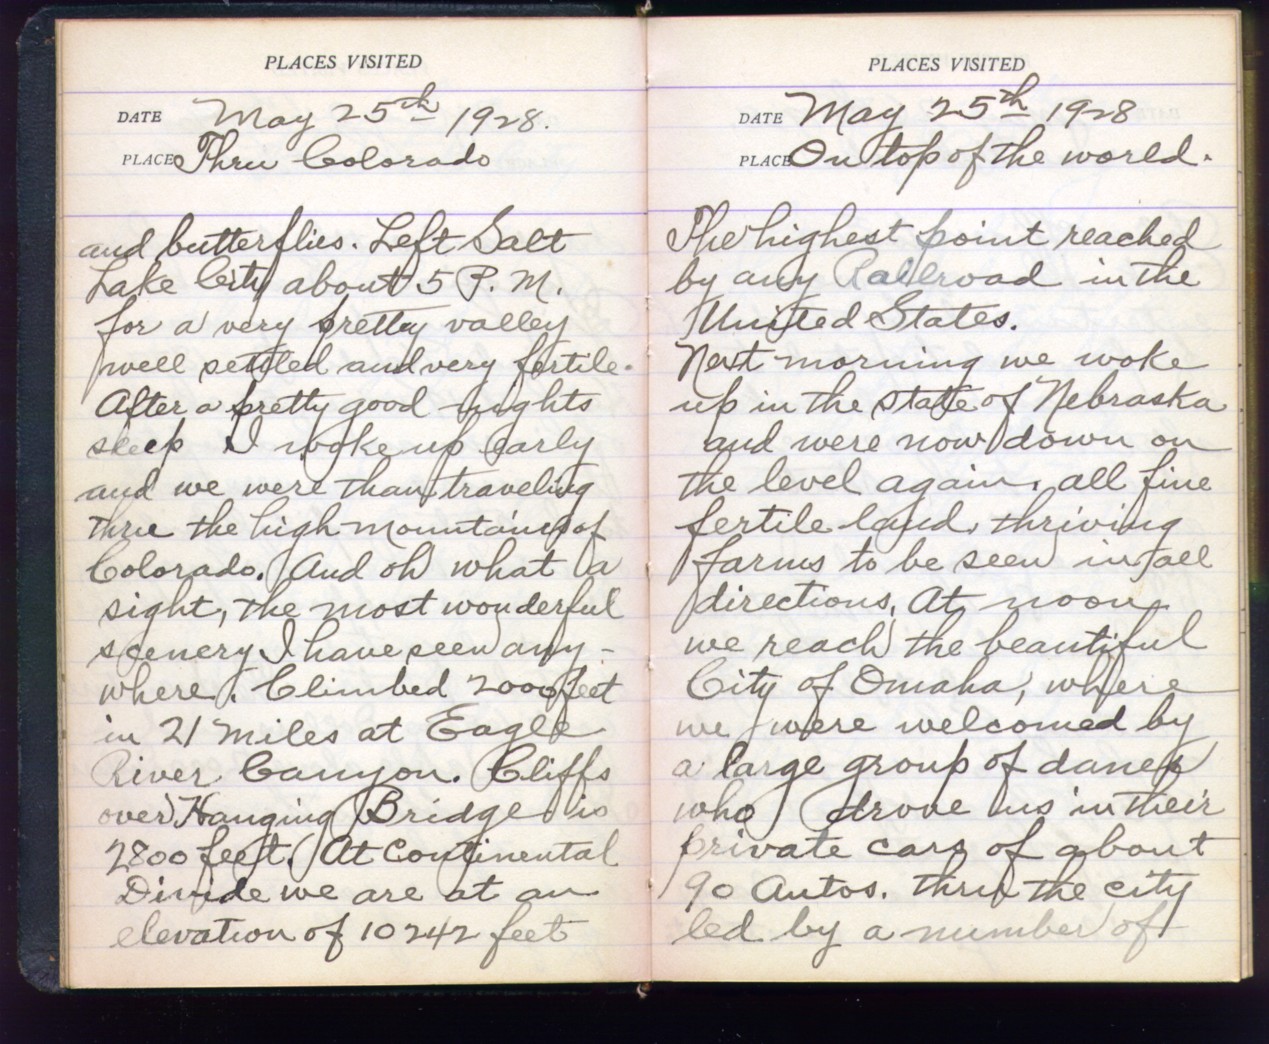 PLACES VISITED
DATE May 25th 1928.
PLACE Thru Colorado
and butterflies. Left Salt
Lake City about 5 P. M.
for a very pretty valley
well settled and very fertile.
After a pretty good nights
sleep I woke up early
and we were than traveling
thru the high mountains of
Colorado. And oh what a
sight, the most wonderful
scenery I have seen any-
where. Climbed 2000 feet
in 21 miles at Eagle
River Canyon. Cliffs
over Hanging Bridge is
2800 feet. At Continental
Divide we are at an
elevation of 10242 feet
PLACES VISITED
DATE May 25th 1928
PLACE On top of the world.
The highest point reached
by any Railroad in the
United States.
Next morning we woke
up in the state of Nebraska
and were now down on
the level again. all fine
fertile land, thriving
farms to be seen in all
directions. At noon
we reach the beautiful
City of Omaha, where
we were welcomed by
a large group of danes
who drove us in their
private cars of about
90 Autos. thru the city
led by a number of